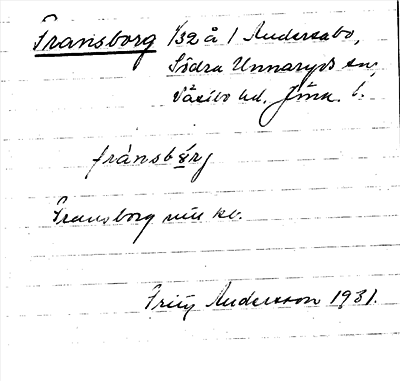 Fransborg 1/32 å 1 Andersabo,
Södra Unnaryds sn,
Västbo hd. Jönk. l.
fránsbòrj
Fransborg
Andersson 1931.